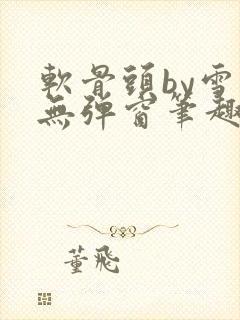 軟骨頭by雪
無彈窗筆趣
董飛